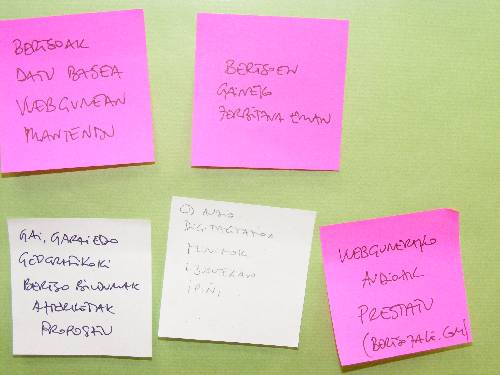 BERTSOAK
DATU BASEA
WEBGUNEAN
MANTENDU
BERTSOEN
GAINEKO
ZERBITZUA EMAN
GAI, GARAI EDO
GEOGRAFIKOKI
BERTSO BILDUMAK
AITERKETAK
PROPOSATU
AUDIO
DIGITALIZATUAK
WEBGUNERAKO
AUDIOAK
PRESTATU
(BERTSOZALE.COM)